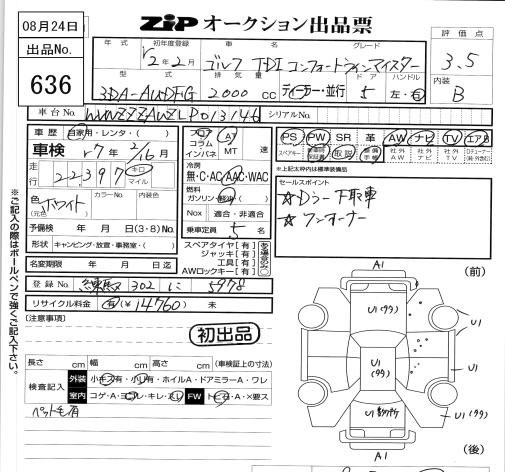 08月24日
ZIP オークション出品票
出品No.
636
評価点
3.5
内装
B
年式
初年度登録
R2年2月
車名
グレード
ゴルフ TDI コンフォートラインマイスター
型式
3DA-AUDFG
排気量
2000 cc
ディーラー・並行
ドア
5
ハンドル
左・右
車台No.
シリアルNo.
車歴 自家用・レンタ・( )
車検 r7年 2/16月
走行
22397
キロ
マイル
色 ホワイト
(元色)
カラーNo.
内装色
予備検 年 月 日(3・8)No.
形状 キャンピング・放宣・事務室・( )
名変期限 年 月 日迄
フロア
コラム
インパネ
AT
MT
速
冷房
無・C・AC・AAC・WAC
燃料
ガソリン・軽油・( )
Nox 適合・非適合
乗車定員 5 名
スペアタイヤ[有]
ジャッキ[有]
工具[有]
AWロックキー[有]
PS PW SR 革 AW ナビ TV エアB
スペアキー 取説 社外AW 社外ナビ 社外TV
※上記太枠内は標準装備品
セールスポイント
☆Dラー下取車
☆ワンオーナー
登録No. 練馬 302 に 5978
リサイクル料金 有(¥14760) 未
[注意事項]
初出品
長さ cm 幅 cm 高さ cm (車検証上の寸法)
検査記入
外装 小キズ有・小凹有・ホイルA・ドアミラーA・ワレ
室内 コゲ・A・ヨゴレ・キレ・スレ FW トビ石・A・×要ス
ペット毛有
※ご記入の際はボールペンで強くご記入下さい。
A1
(前)
U1(99)
U1
U1
(99)
U1
U1
U1(99)
A1
(後)